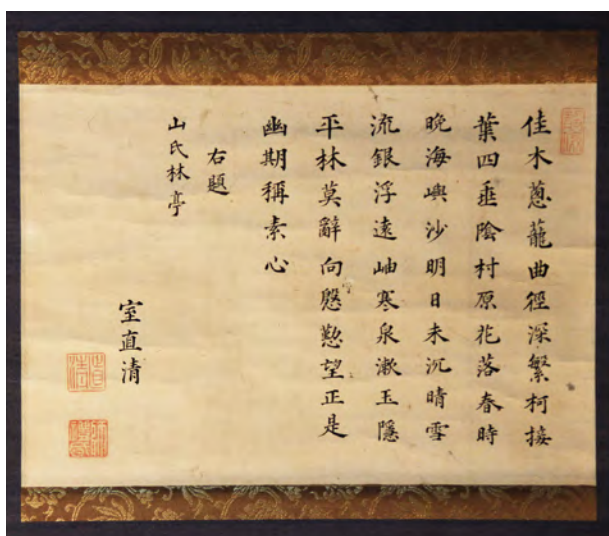 佳木蔥蘢曲徑深繁柯接
葉四垂陰村原花落春時
晩海嶼沙明日未沉晴雪
流銀浮遠岫寒泉漱玉隱
平林莫辭向慇懃望正是
幽期稱素心
右題
山氏林亭
室直清
直清